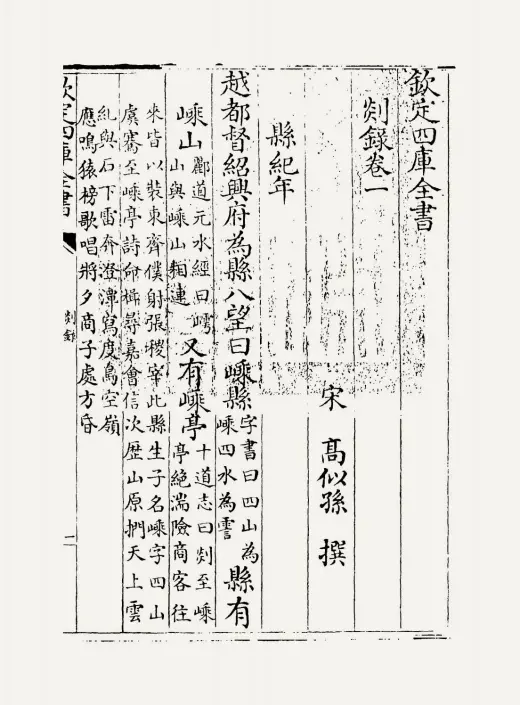 欽定四庫全書
剡錄卷一
宋 高似孫 撰
縣紀年
越都督紹興府為縣八望曰嵊縣
字書曰四山為
嵊四水為
縣有
嵊山
酈道元水經曰
山與嵊山連
又有嵊亭
十道志曰剡至嵊
亭絶湍險商客往
來皆以裝束齊僕射張稷宰此縣生子名嵊字四山
虞騫至嵊亭詩命檝尋嘉會信次歷山原捫天上雲
糺與石下雷奔澄潭寫度鳥空嶺
應鳴猿榜歌唱將夕商子處方昏
欽定四庫全書
剡錄